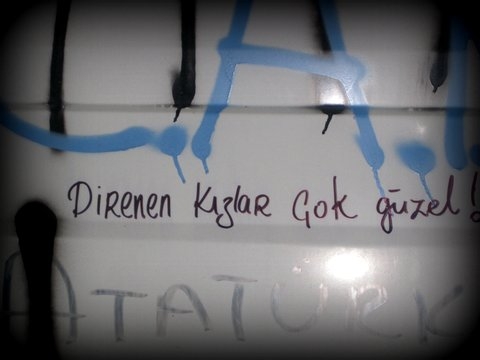 A.
Direnen Kızlar Çok güzel!
ATATÜRK